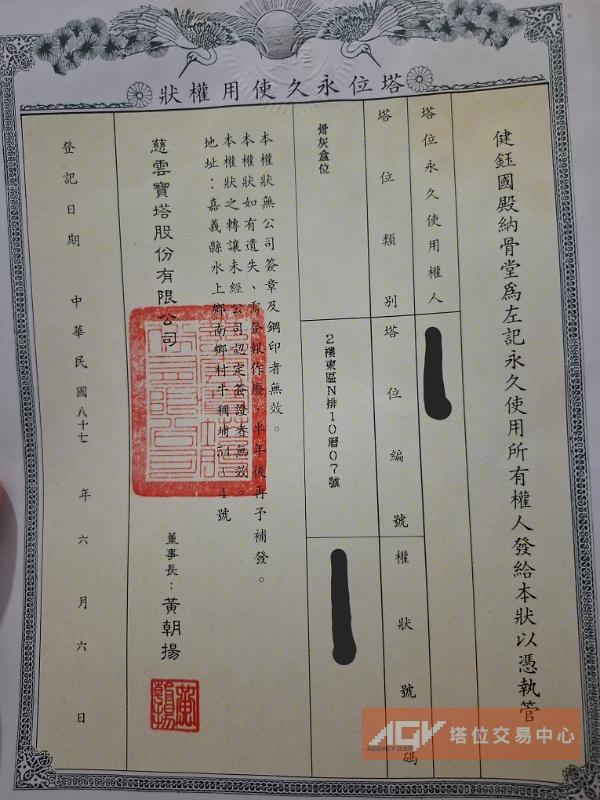 塔位永久使用權狀
健鈺國殿納骨堂為左記永久使用所有權人發給本狀以憑執管
塔位永久使用權人
塔位類別
塔位編號
權狀號碼
骨灰盒位
2樓東區N排10層07號
本權狀無公司簽章及鋼印者無效。
本權狀如有遺失、需登報作廢，半年後再予補發。
本權狀之轉讓未經公司認定簽證者無效。
地址：嘉義縣水上鄉南鄉村牛稠埔54
4號
慈雲寶塔股份有限公司
董事長：黃朝揚
登記日期 中華民國八十七年六月六日
AGV 塔位交易中心